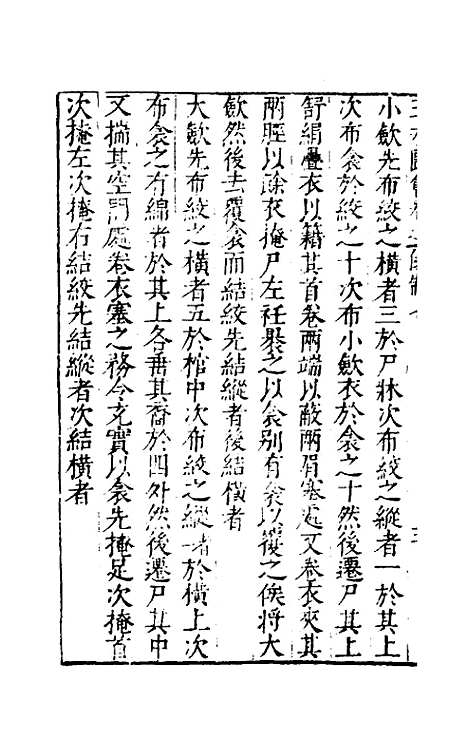 三才圖會
小歛先布絞之橫者三於尸牀次布絞之縱者一於其上
次布衾於絞之十次布小歛衣於衾之十然後遷尸其上
舒絹疊衣以籍其首卷兩端以蔽兩肩塞處又卷衣夾其
兩脛以餘衣掩尸左衽褁之以衾别有衾以覆之俟將大
歛然後去覆衾而結絞先結縱者後結橫者
大歛先布絞之橫者五於棺中次布絞之縱者於橫上次
布衾之有綿者於其上各垂其裔於四外然後遷尸其中
又揣其空門處卷衣塞之務令充實以衾先掩足次掩首
次掩左次掩右結絞先結縱者次結橫者